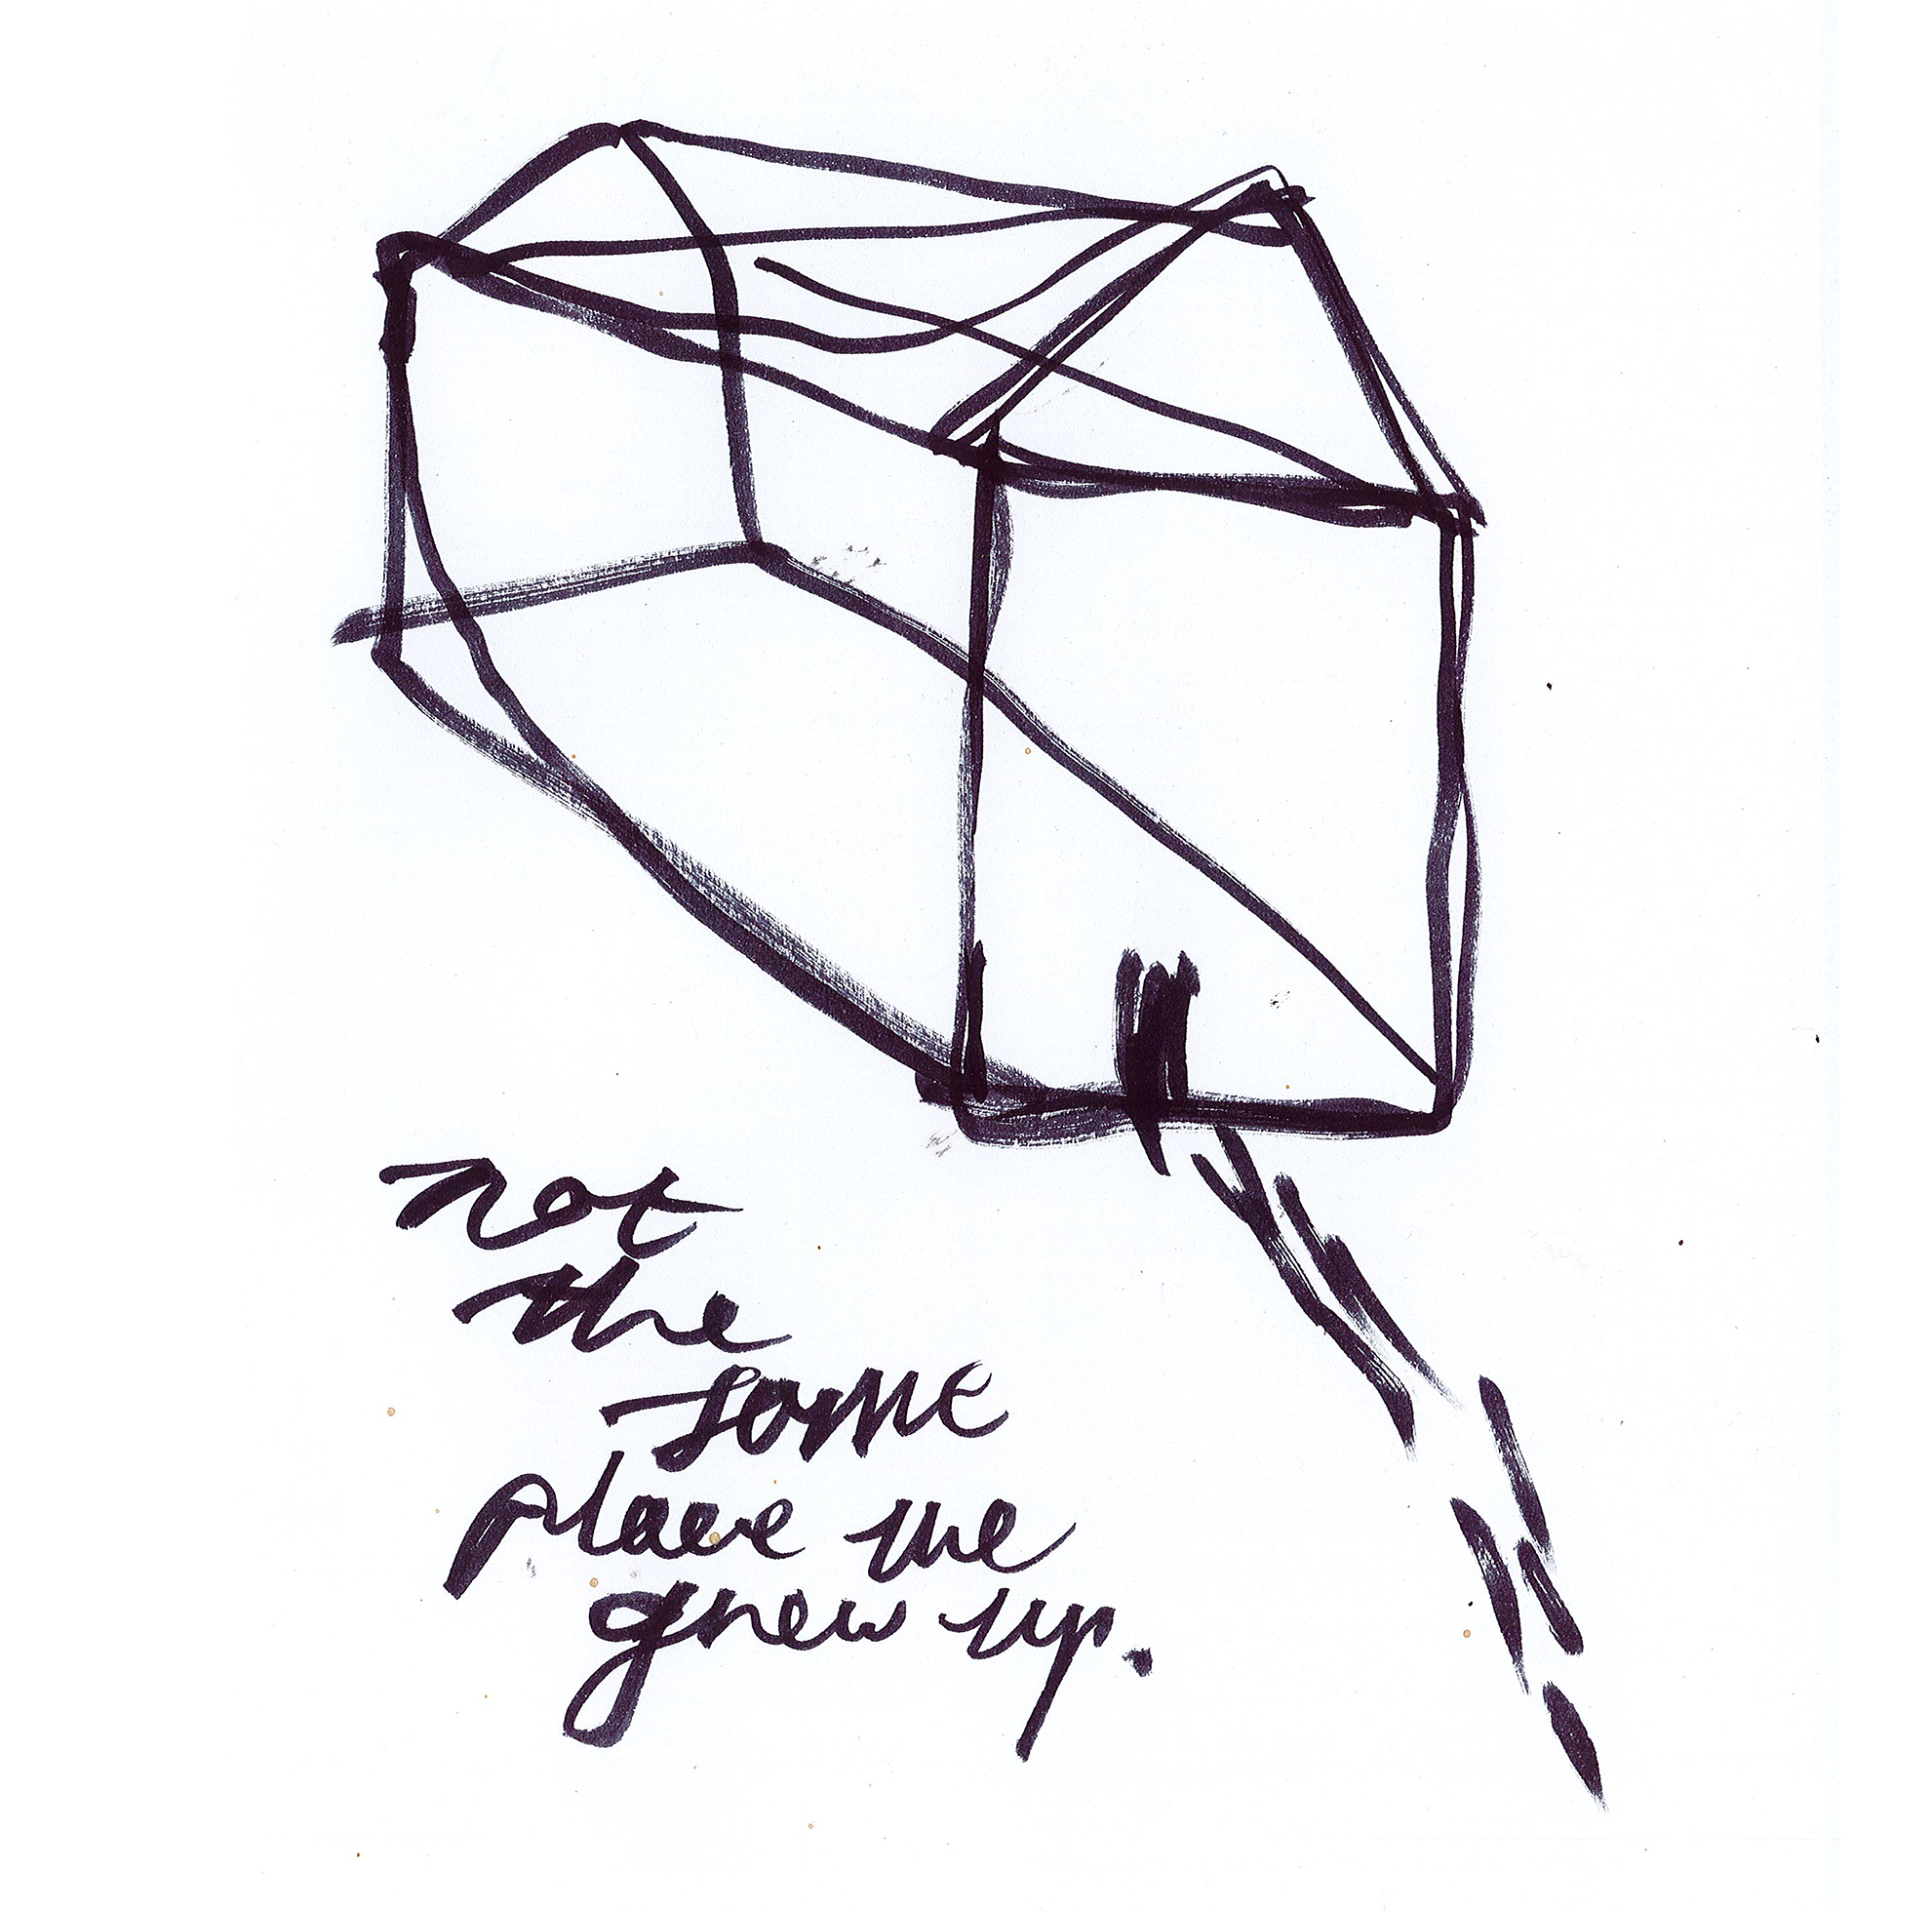 not
the
same
place we
grew up.